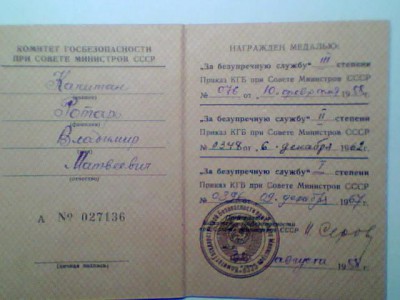 КОМИТЕТ ГОСБЕЗОПАСНОСТИ
ПРИ СОВЕТЕ МИНИСТРОВ СССР
Капитан
(звание)
Ротар
(фамилия)
Владимир
(имя)
Матвеевич
(отчество)
А № 027136
(личная подпись)
НАГРАЖДЕН МЕДАЛЬЮ:
„За безупречную службу" III степени
Приказ КГБ при Совете Министров СССР
№ 076 от 10 февраля 1958 г.
„За безупречную службу" II степени
Приказ КГБ при Совете Министров СССР
№ 0348 от 6 декабря 1962 г.
„За безупречную службу" I степени
Приказ КГБ при Совете Министров СССР
№ 0396 от 09 декабря 1967 г.
Председатель
И Серов
августа 1958 г.